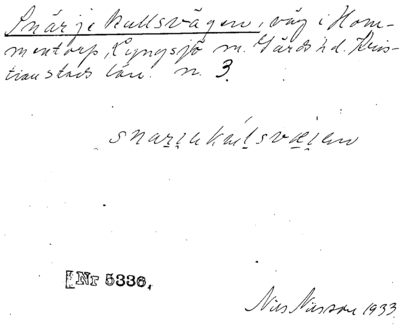 Snärjekullsvägen, väg i Hom-
mentorp, Lyngsjö sn. Gärds hd. Kris-
tianstads län. n. 3.
Nr 5336.
Nils Nilsson 1933.